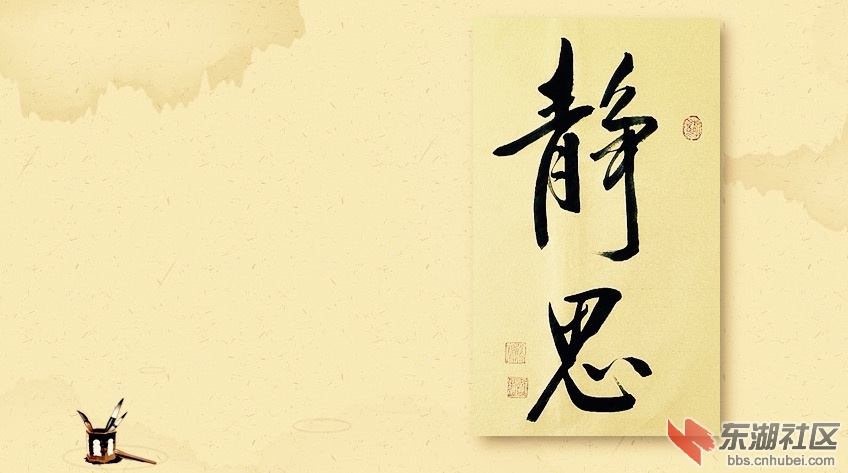 静思
东湖社区
bbs.cnhubei.com